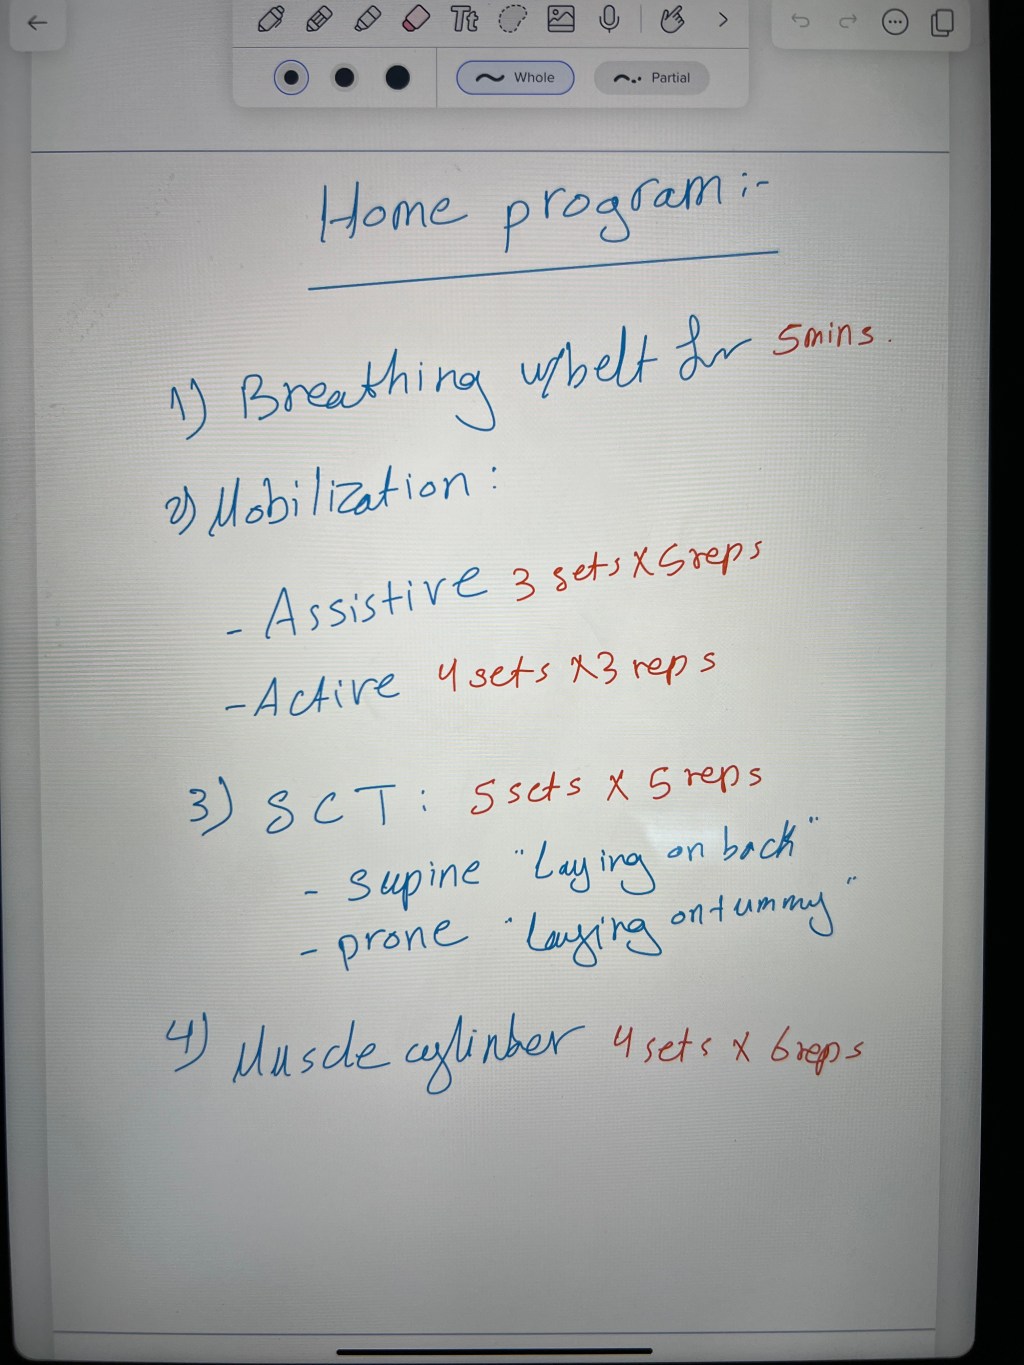 Tt
Whole
Partial
Home program:-
1) Breathing w/belt for 5mins.
2) Mobilization:
- Assistive 3 sets x 5reps
- Active 4 sets x3 reps
3) SCT: 5 sets x 5 reps
- supine "Laying on back"
- prone "Laying on tummy"
4) Muscle cylinber 4 sets x 6reps